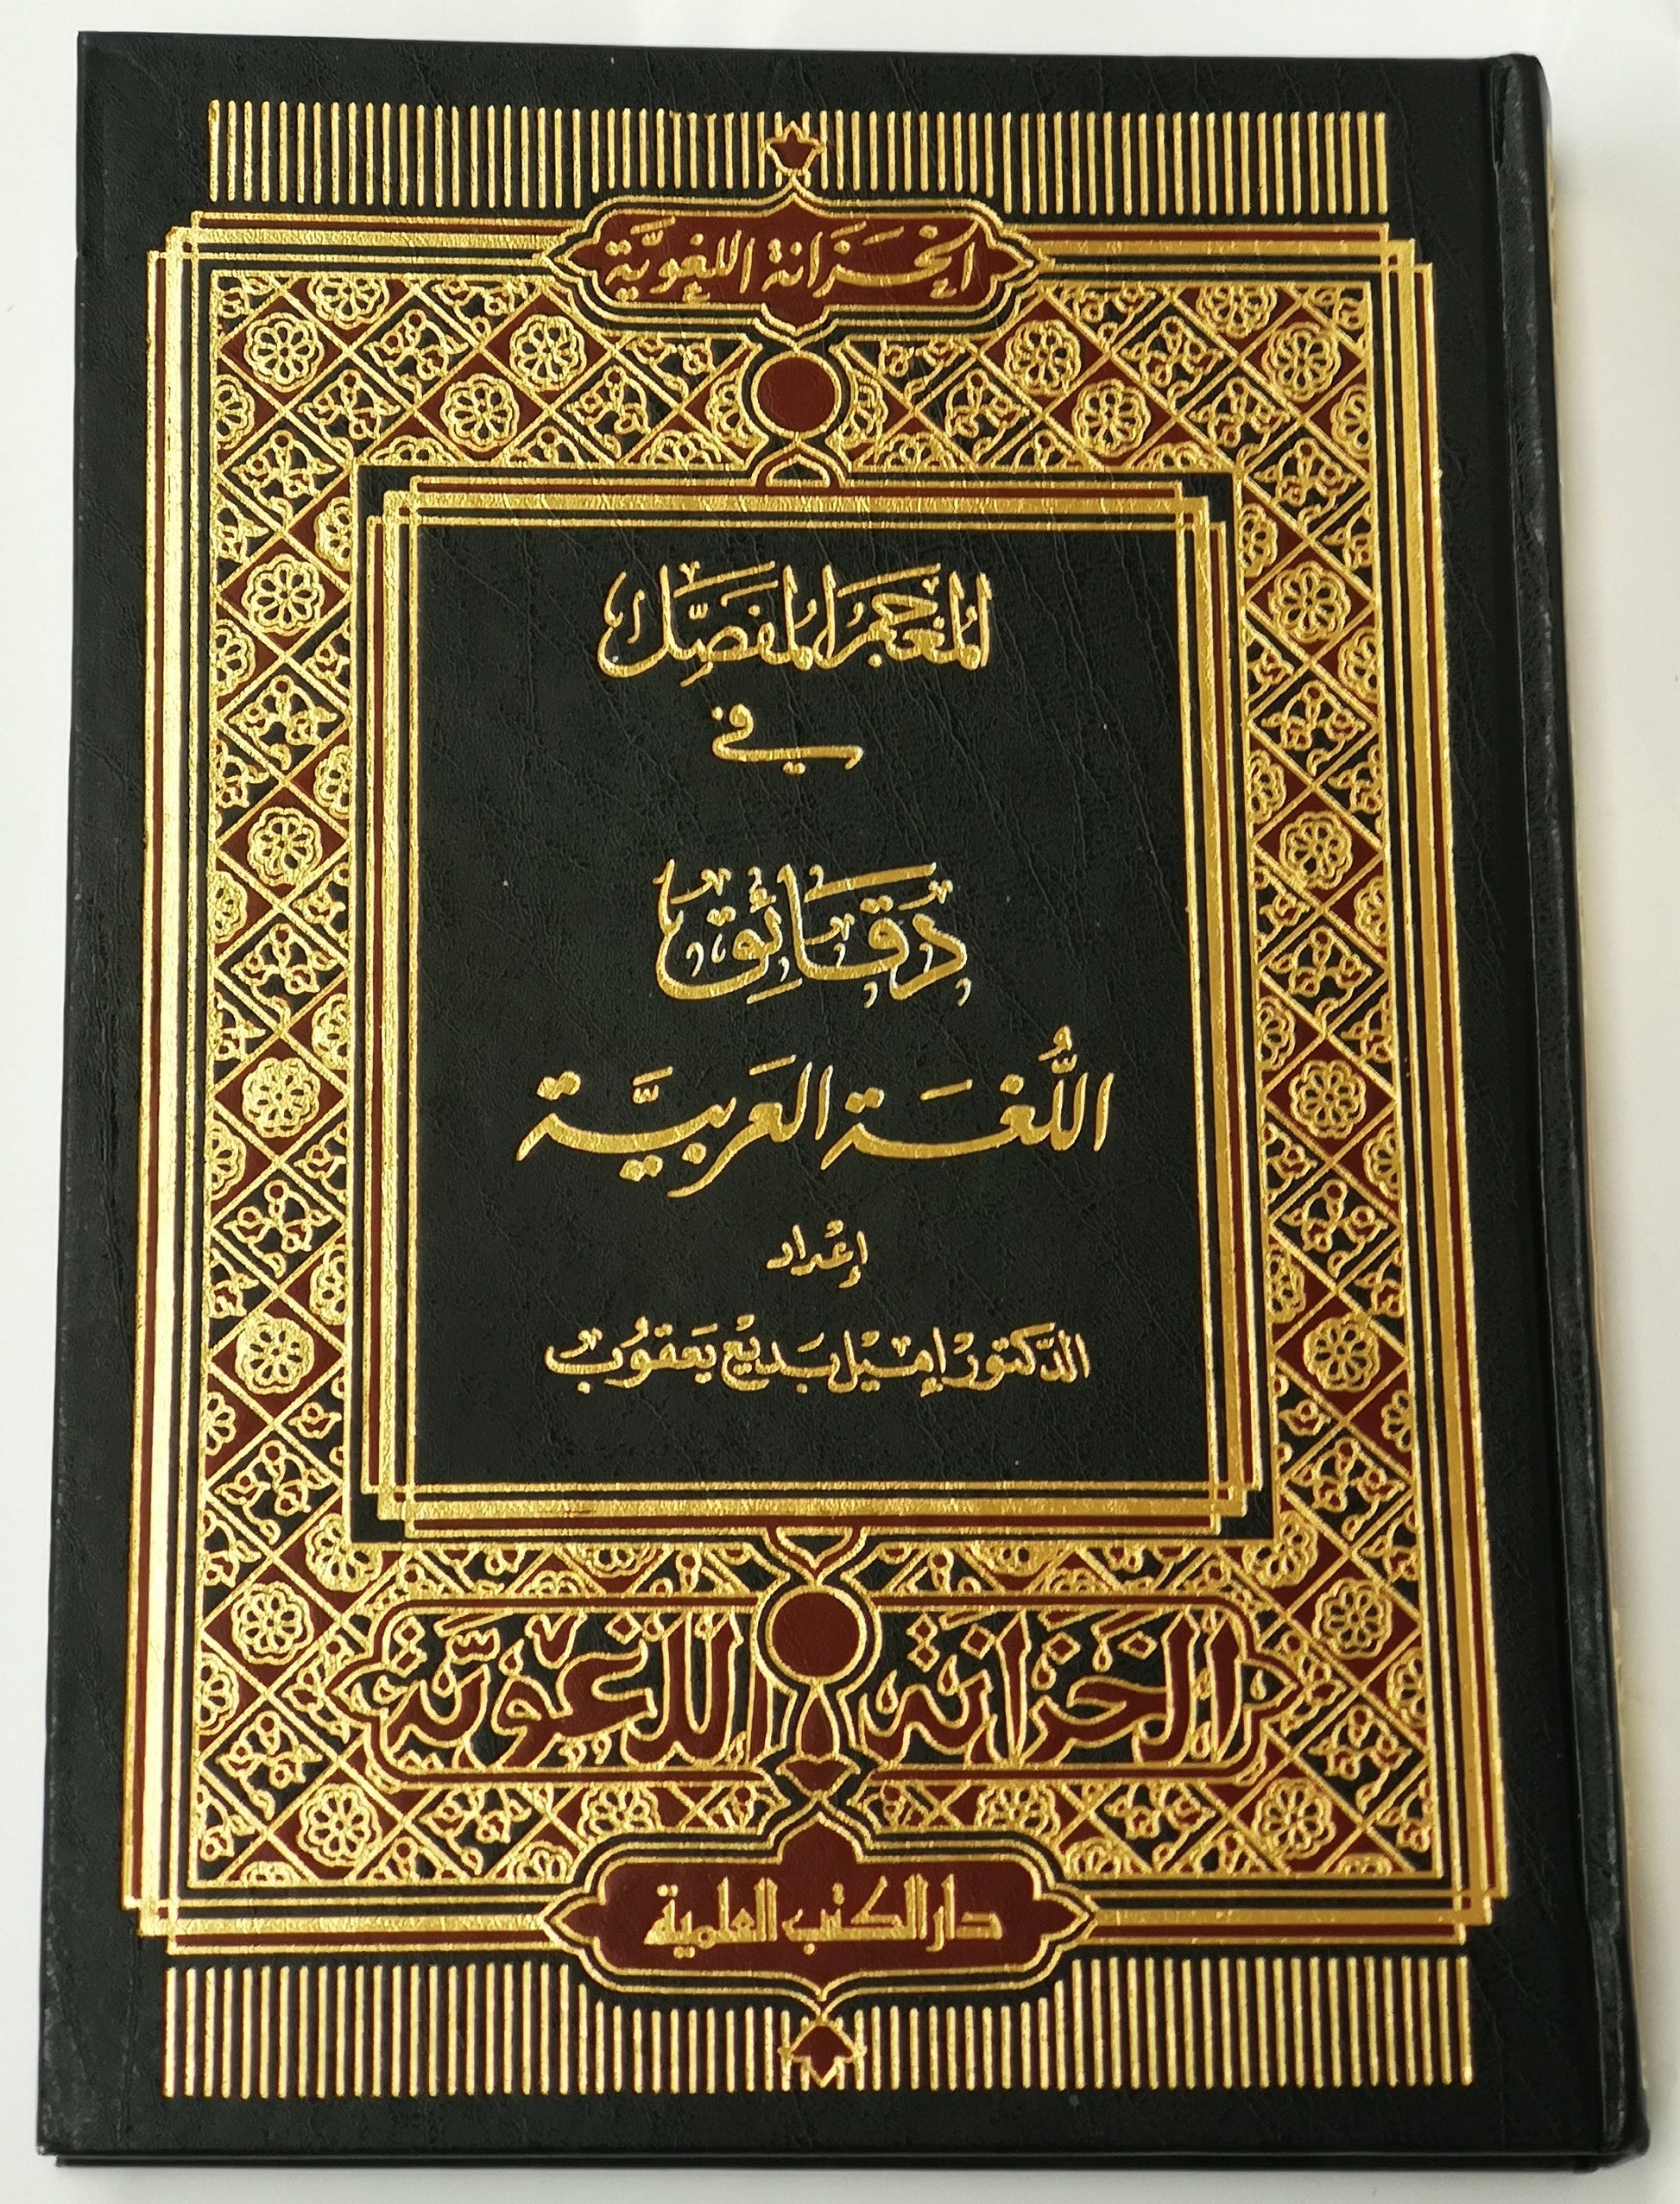 الخزانة اللغوية
المعجم المفصل
في
دقائق
اللغة العربية
إعداد
الدكتور إميل بديع يعقوب
الخزانة اللغوية
دار الكتب العلمية